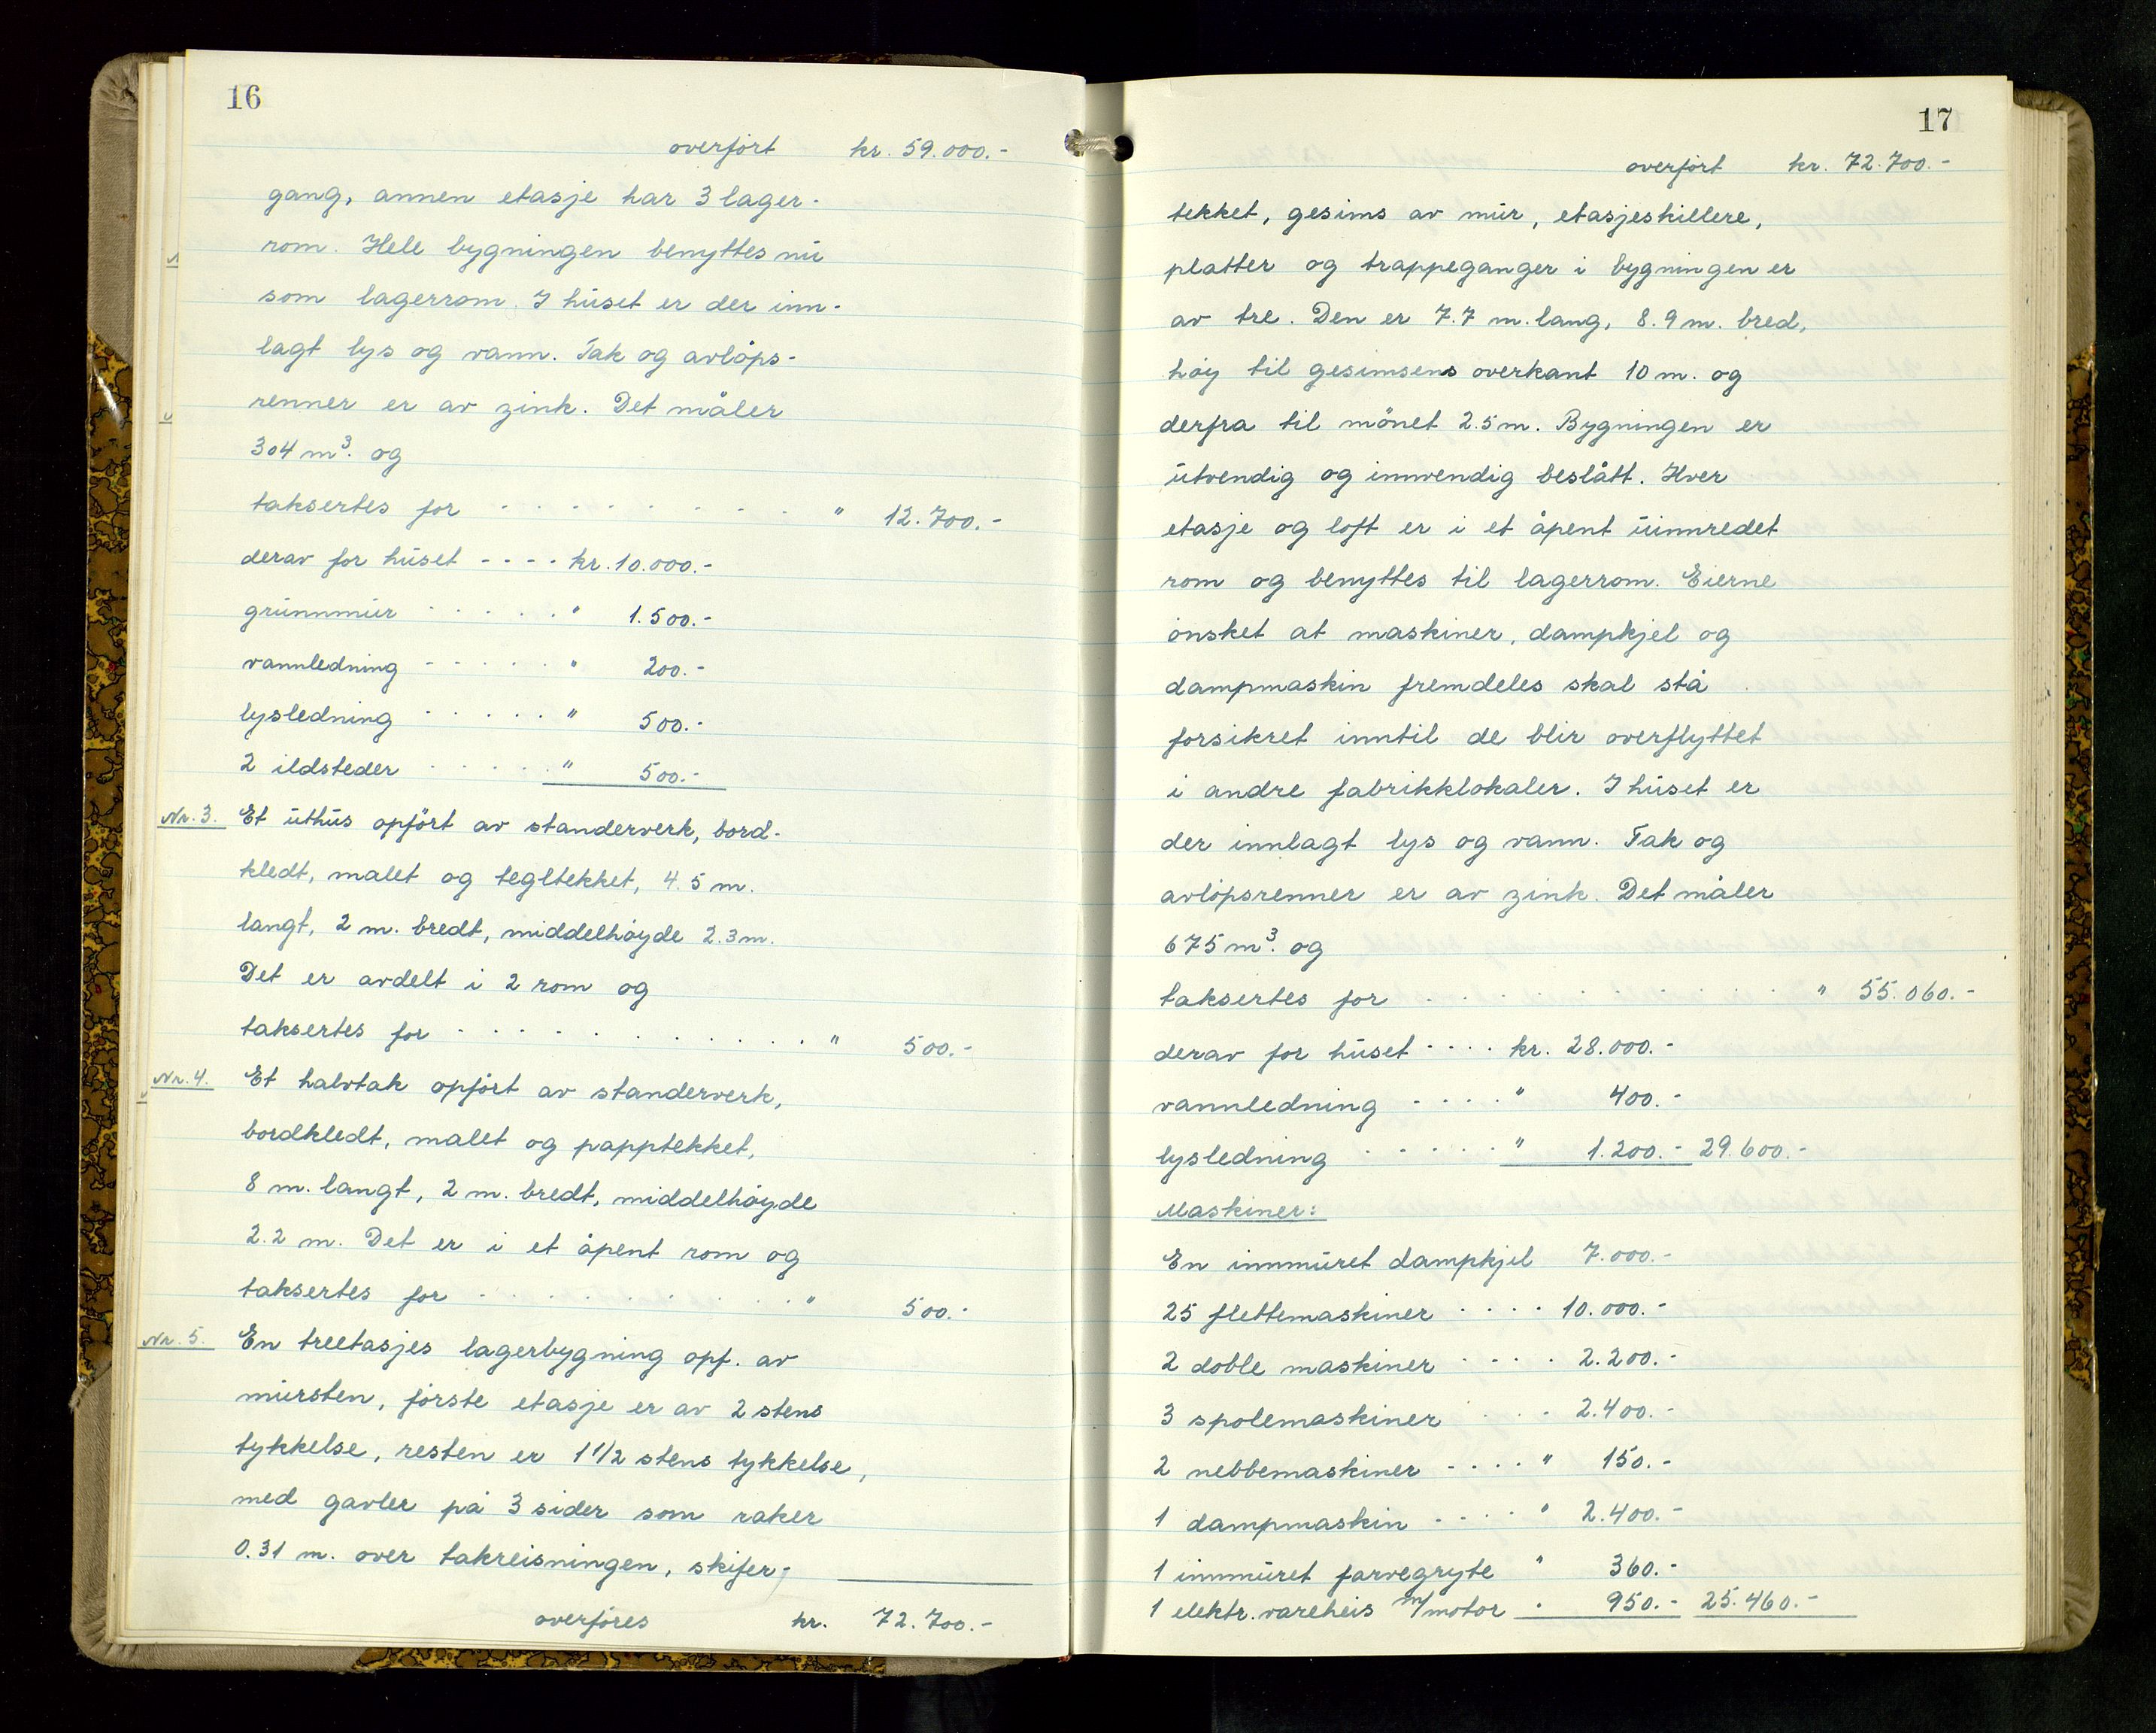 16
overført kr. 59.000.-
gang, annen etasje har 3 lager-
rom. Hele bygningen benyttes nu
som lagerrom. I huset er der inn-
lagt lys og vann. Tak og avløps-
renner er av zink. Det måler
304 m³. og
taksertes for - - - - - - - - - - " 12.700.-
derav for huset - - - - kr. 10.000.-
grunnmur - - - - - " 1.500.-
vannledning - - - - - " 200.-
lysledning - - - - - " 500.-
2 ildsteder - - - - - " 500.-
Nr. 3. Et uthus opført av standerverk, bord-
kledt, malet og tegltekket, 4.5 m.
langt, 2 m. bredt, middelhøyde 2.3 m.
Det er avdelt i 2 rom og
taksertes for - - - - - - - - - - " 500.-
Nr. 4. Et halvtak opført av standerverk,
bordkledt, malet og papptekket,
8 m. langt, 2 m. bredt, middelhøyde
2.2 m. Det er i et åpent rom og
taksertes for - - - - - - - - - - " 500.-
Nr. 5. En treetasjes lagerbygning opf. av
mursten, første etasje er av 2 stens
tykkelse, resten er 1 1/2 stens tykkelse,
med gavler på 3 sider som raker
0.31 m. over takreisningen, skifer-
overføres kr. 72.700.-
17
overført kr. 72.700.-
tekket, gesims av mur, etasjeskillere,
platter og trappeganger i bygningen er
av tre. Den er 7.7 m. lang, 8.9 m. bred,
høy til gesimsens overkant 10 m. og
derfra til mønet 2.5 m. Bygningen er
utvendig og innvendig beslått. Hver
etasje og loft er i et åpent uinnredet
rom og benyttes til lagerrom. Eierne
ønsket at maskiner, dampkjel og
dampmaskin fremdeles skal stå
forsikret inntil de blir overflyttet
i andre fabrikklokaler. I huset er
der innlagt lys og vann. Tak og
avløpsrenner er av zink. Det måler
675 m³. og
taksertes for - - - - - - - - - - " 55.060.-
derav for huset - - - - kr. 28.000.-
vannledning - - - - " 400.-
lysledning - - - - - " 1.200.- 29.600.-
Maskiner:
En innmuret dampkjel 7.000.-
25 flettemaskiner - - - - 10.000.-
2 doble maskiner - - - - 2.200.-
3 spolemaskiner - - - 2.400.-
2 nebbemaskiner - - - - " 150.-
1 dampmaskin - - - - " 2.400.-
1 innmuret farvegryte " 360.-
1 elektr. vareheis m/motor " 950.- 25.460.-